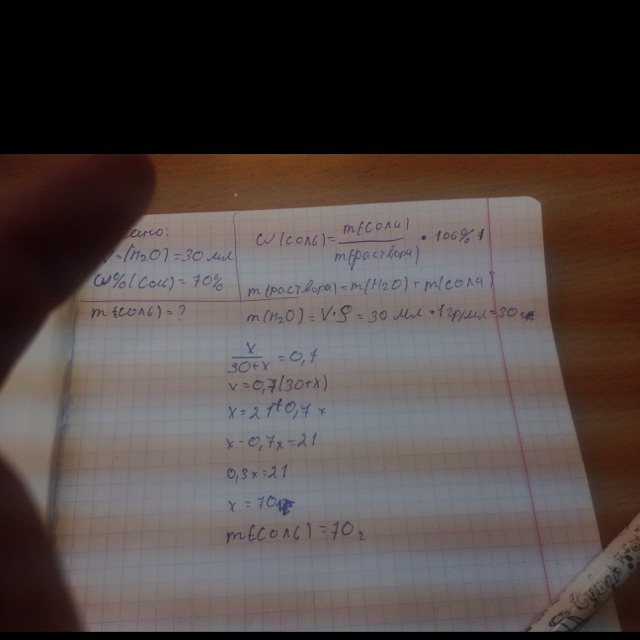 V=(H₂O)=30 мл
ω%(соль)=70%
m(соль)=?
ω(соль)= m(соли) / m(раствора) • 100%
m(раствора)=m(H₂O)+m(соли)
m(H₂O)=V·ρ=30 мл·1гр/мл=30г
x / 30+x =0,7
x=0,7(30+x)
x=21+0,7x
x-0,7x=21
0,3x=21
x=70
m(соль)=70г